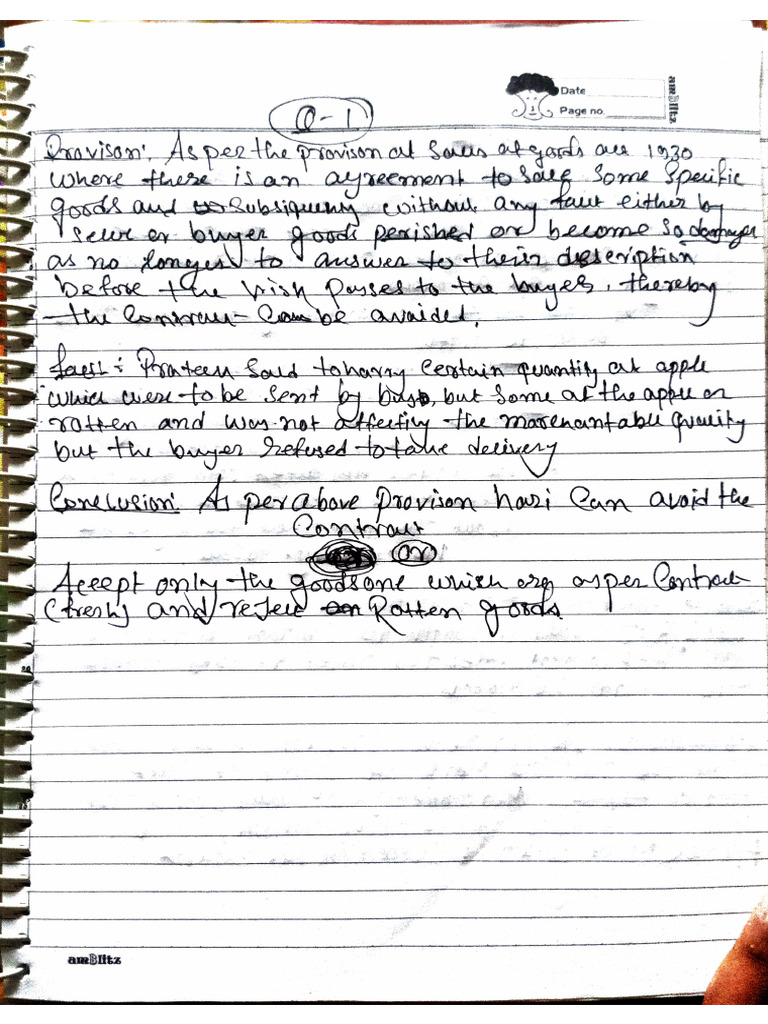 Date
Page no.
amBlitz
Q-1
Provison: As per the provison of Sales of goods act 1930
where there is an agreement to sale some specific
goods and subsiquenty without any fault either by
seller or buyer goods perished or become so damage
as no longer to answer to their description
before the risk passes to the buyer, thereby
the contract can be avoided.
Fact: Prateen Sold to harry certain quantity of apple
which were to be sent by bus, but some of the apple are
rotten and was not affecting the marchantable quality
but the buyer refused to take delivery
Conclusion: As per above provison hari can avoid the
Contract
or
Accept only the goods one which are as per Contract
(fresh) and reject Rotten goods
amBlitz